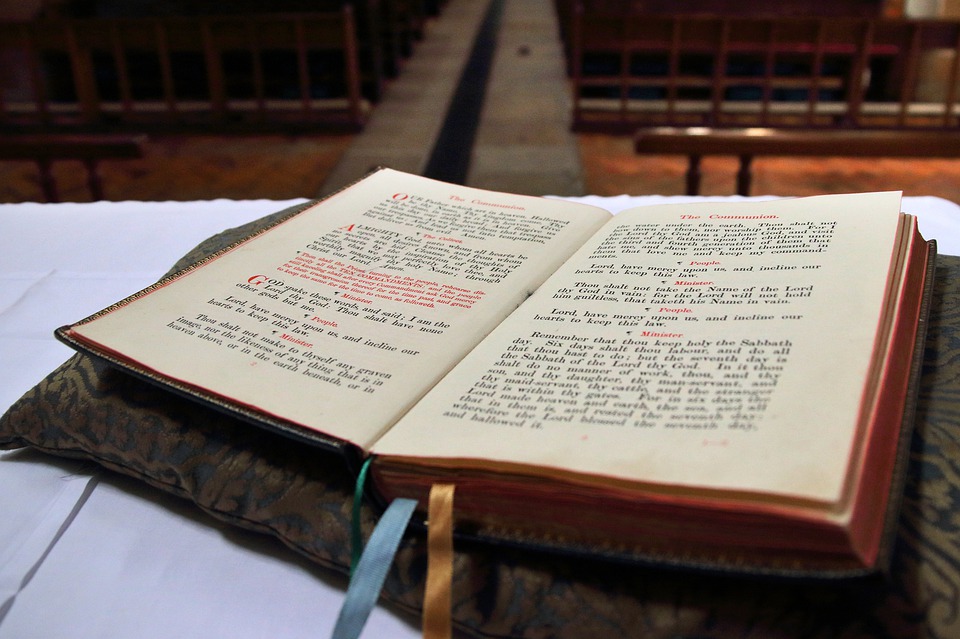 The Communion.
OUR Father which art in heaven, Hallowed
be thy Name. Thy kingdom come. Thy
will be done in earth, As it is in heaven. Give
us this day our daily bread. And forgive us our
trespasses, As we forgive them that
trespass against us. And lead us not into temptation,
But deliver us from evil. Amen.
The Collect.
ALMIGHTY God, unto whom all hearts be
open, all desires known, and from whom no
secrets are hid: Cleanse the thoughts of our
hearts by the inspiration of thy Holy
Spirit, that we may perfectly love thee, and
worthily magnify thy holy Name; through
Christ our Lord. Amen.
¶ Then shall the Priest, turning to the people, rehearse distinctly
all the TEN COMMANDMENTS; and the people
still kneeling shall, after every Commandment, ask God mercy
for their transgression thereof for the time past, and grace
to keep the same for the time to come, as followeth.
¶ Minister.
GOD spake these words, and said; I am the
Lord thy God: Thou shalt have none
other gods but me.
¶ People.
Lord, have mercy upon us, and incline our
hearts to keep this law.
¶ Minister.
Thou shalt not make to thyself any graven
image, nor the likeness of any thing that is in
heaven above, or in the earth beneath, or in
The Communion.
the water under the earth. Thou shalt not
bow down to them, nor worship them. For I
the Lord thy God am a jealous God, and visit
the sins of the fathers upon the children unto
the third and fourth generation of them that
hate me, and shew mercy unto thousands in
them that love me and keep my command-
ments.
¶ People.
Lord, have mercy upon us, and incline our
hearts to keep this law.
¶ Minister.
Thou shalt not take the Name of the Lord
thy God in vain: for the Lord will not hold
him guiltless, that taketh his Name in vain.
¶ People.
Lord, have mercy upon us, and incline our
hearts to keep this law.
¶ Minister.
Remember that thou keep holy the Sabbath
day. Six days shalt thou labour, and do all
that thou hast to do; but the seventh day is
the Sabbath of the Lord thy God. In it thou
shalt do no manner of work, thou, and thy
son, and thy daughter, thy man-servant, and
thy maid-servant, thy cattle, and the stranger
that is within thy gates. For in six days the
Lord made heaven and earth, the sea, and all
that in them is, and rested the seventh day;
wherefore the Lord blessed the seventh day,
and hallowed it.